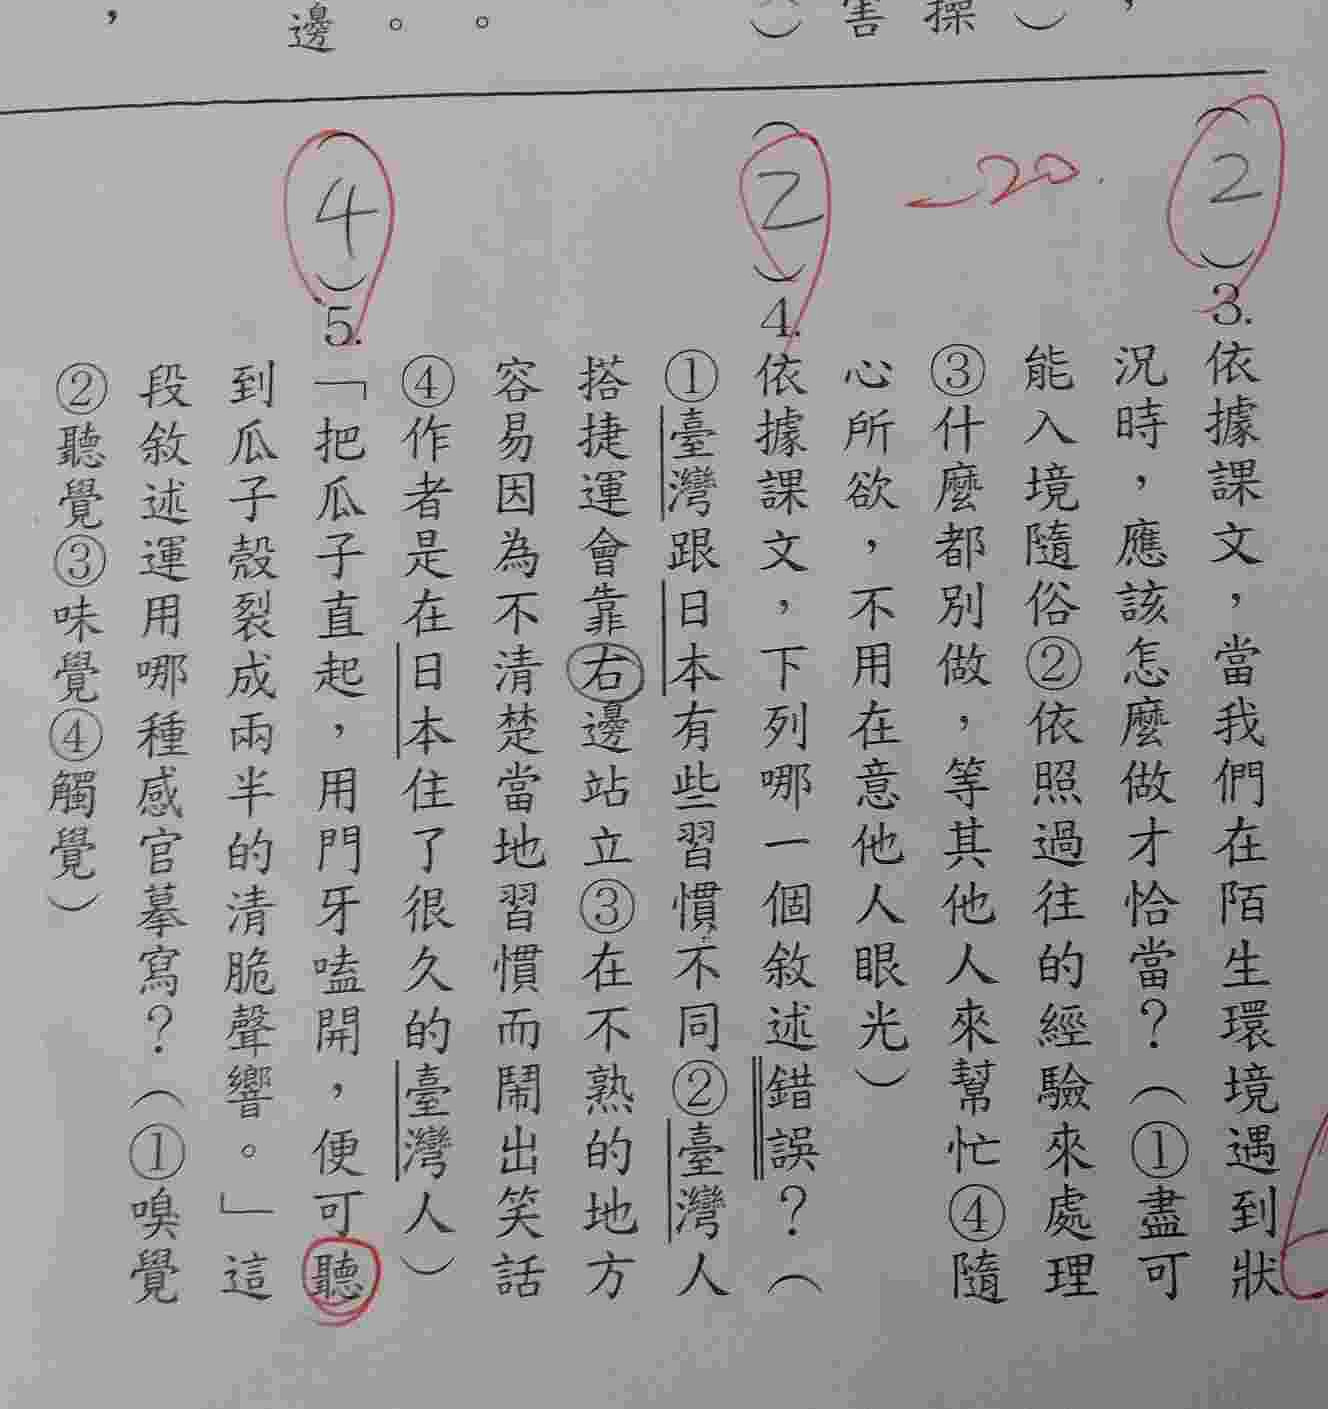 操
害
。
。
邊
-20.
(2)3.依據課文，當我們在陌生環境遇到狀
況時，應該怎麼做才恰當？（①盡可
能入境隨俗②依照過往的經驗來處理
③什麼都別做，等其他人來幫忙④隨
心所欲，不用在意他人眼光）
(2)4.依據課文，下列哪一個敘述錯誤？（
①臺灣跟日本有些習慣不同②臺灣人
搭捷運會靠右邊站立③在不熟的地方
容易因為不清楚當地習慣而鬧出笑話
④作者是在日本住了很久的臺灣人）
(4)5.「把瓜子直起，用門牙嗑開，便可聽
到瓜子殼裂成兩半的清脆聲響。」這
段敘述運用哪種感官摹寫？（①嗅覺
②聽覺③味覺④觸覺）